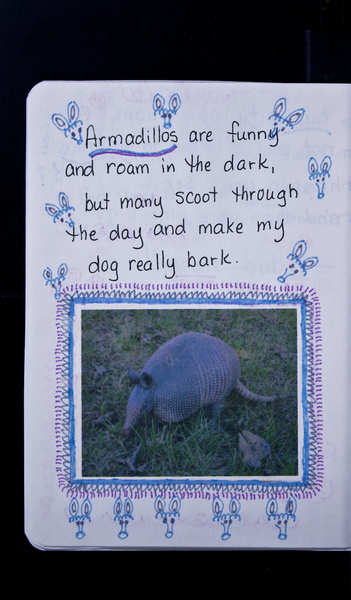 Armadillos are funny
and roam in the dark,
but many scoot through
the day and make my
dog really bark.